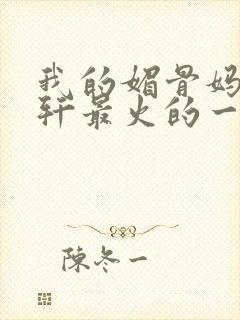 我的媚骨妈
轩最火的一
陳冬一